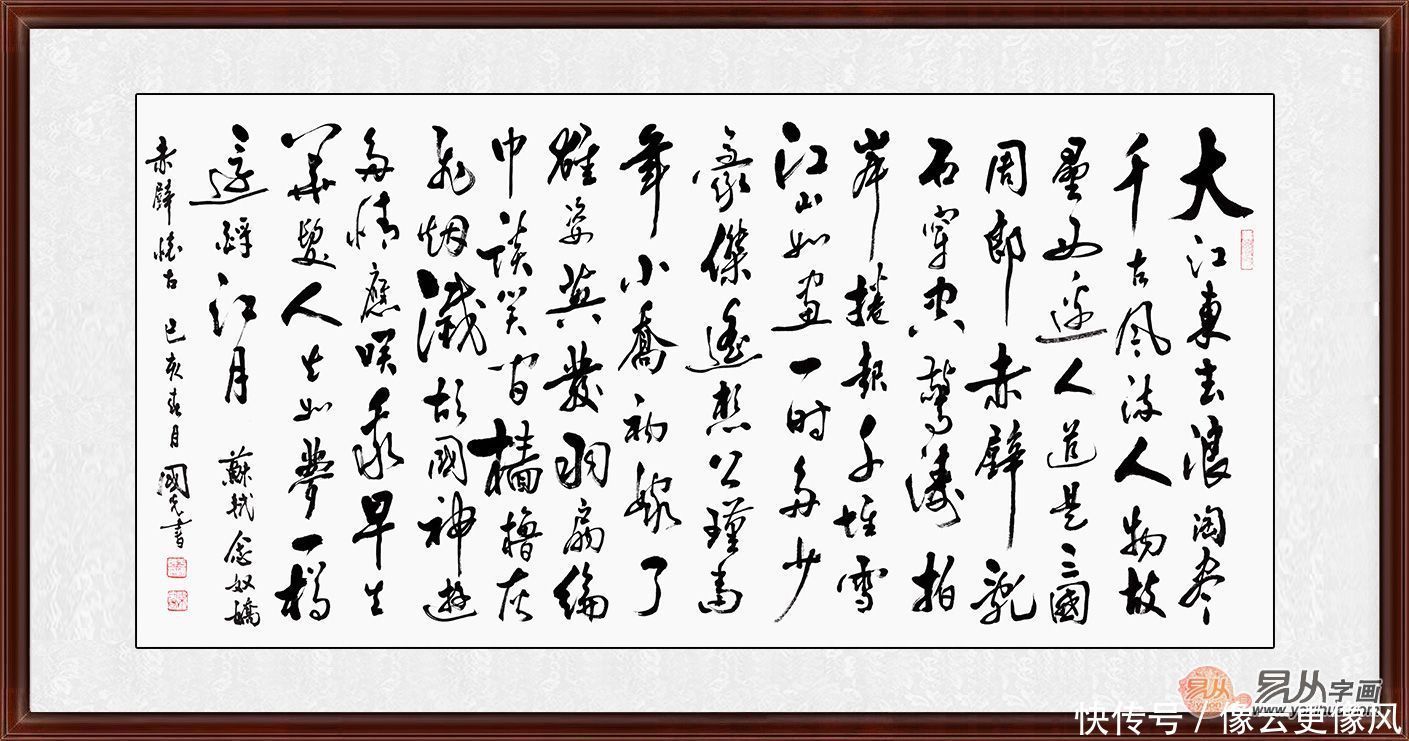 大江東去浪淘尽
千古風流人物故
壘西邊人道是三國
周郎赤壁乱
石穿空驚濤拍
岸捲起千堆雪
江山如画一时多少
豪傑遙想公瑾當
年小喬初嫁了
雄姿英發羽扇綸
巾談笑间檣櫓灰
飞烟滅故國神遊
多情應咲我早生
華髮人生如夢一樽
還酹江月 蘇軾念奴嬌
赤壁懷古 己亥春月國書
易从 易从字画
快传号 / 像云更像风